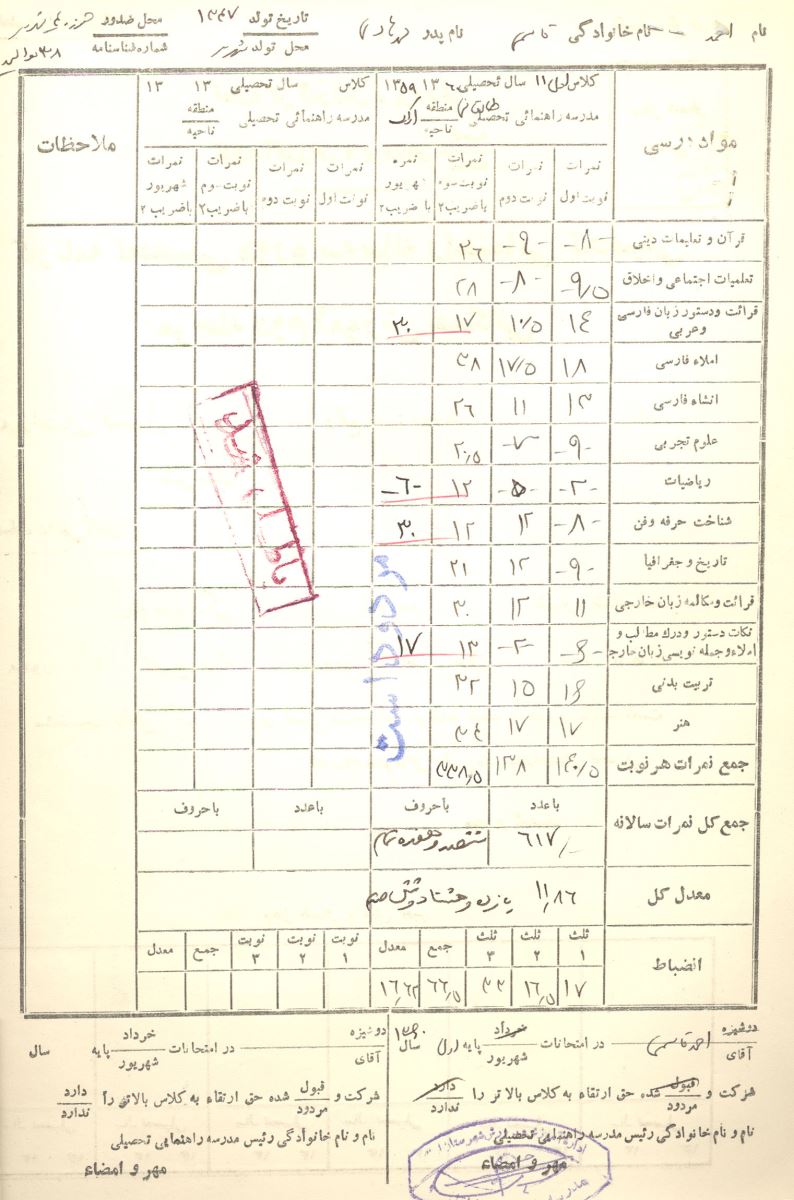 نام احمد نام خانوادگی قاسمی نام پدر تاریخ تولد ۱۳۴۷ محل صدور
محل تولد شماره شناسنامه
مواد درسی
کلاس اول سال تحصیلی ۶۰ ۱۳ ۱۳۵۹
مدرسه راهنمائی تحصیلی طالقانی منطقه ناحیه اراک
نمرات نوبت اول
نمرات نوبت دوم
نمرات نوبت سوم باضریب۲
نمره شهریور باضریب۲
کلاس سال تحصیلی ۱۳ ۱۳
مدرسه راهنمائی تحصیلی منطقه ناحیه
نمرات نوبت اول
نمرات نوبت دوم
نمرات نوبت سوم باضریب۲
نمرات شهریور باضریب ۲
ملاحظات
قرآن و تعلیمات دینی -۸- -۹- ۲۶
تعلمیات اجتماعی و اخلاق -۹/۵ -۸- ۲۸
قرائت ودستور زبان فارسی وعربی ۱۴ ۱۰/۵ ۱۷ ۳۰
املاء فارسی ۱۸ ۱۷/۵ ۳۸
انشاء فارسی ۱۳ ۱۱ ۲۶
علوم تجربی -۹- -۷- ۲۰/۵
ریاضیات -۳- -۵- ۱۲ -۶-
شناخت حرفه وفن -۸- ۱۲ ۱۲ ۳۰
تاریخ و جغرافیا -۹- ۱۲ ۲۱
قرائت ومکالمه زبان خارجی ۱۱ ۱۲ ۳۰
نکات دستور ودرك مطالب و املاء وجمله نویسی زبان خارجی -۲- ۱۳ ۱۷
تربیت بدنی ۱۶ ۱۵ ۳۲
هنر ۱۷ ۱۷ ۳۴
جمع نمرات هر نوبت ۱۴۰/۵ ۱۳۸ ۳۳۸/۵
مردود است
جمع کل نمرات سالانه
باعدد باحروف باعدد باحروف
۶۱۷/- ششصد و هفده تمام
معدل کل ۱۱/۸۶ یازده و هشتاد و شش صدم
انضباط
ثلث ۱ ثلث ۲ ثلث ۳ جمع معدل نوبت ۱ نوبت ۲ نوبت ۳ جمع معدل
۱۷ ۱۶/۵ ۳۳ ۶۶/۵ ۱۶/۶۲
دوشیزه آقای احمد قاسمی در امتحانات خرداد شهریور پایه اول سال ۱۳۶۰
شرکت و قبول مردود شده حق ارتقاء به کلاس بالا تر را دارد ندارد
نام و نام خانوادگی رئیس مدرسه راهنمایی تحصیلی
مهر و امضاء
دوشیزه آقای در امتحانات خرداد شهریور پایه سال
شرکت و قبول مردود شده حق ارتقاء به کلاس بالاتر را دارد ندارد
نام و نام خانوادگی رئیس مدرسه راهنمایی تحصیلی
مهر و امضاء